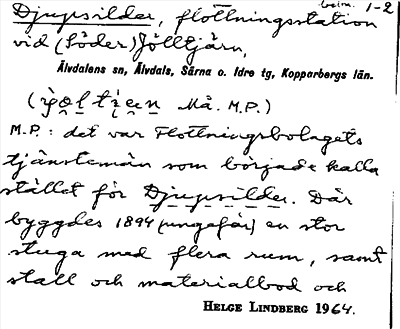 beim. 1-2
Djupsilder, flottningsstation
vid (Söder) Jölltjärn,
Älvdalens sn, Älvdals, Särna o. Idre tg, Kopparbergs län.
Må. M.P.)
M.P.: det var Flottningsbolagets
tjänstemän som började kalla
stället för Djupsilder. Där
byggdes 1894 (ungefär) en stor
stuga med flera rum, samt
stall och materialbod och
HELGE LINDBERG 1964.